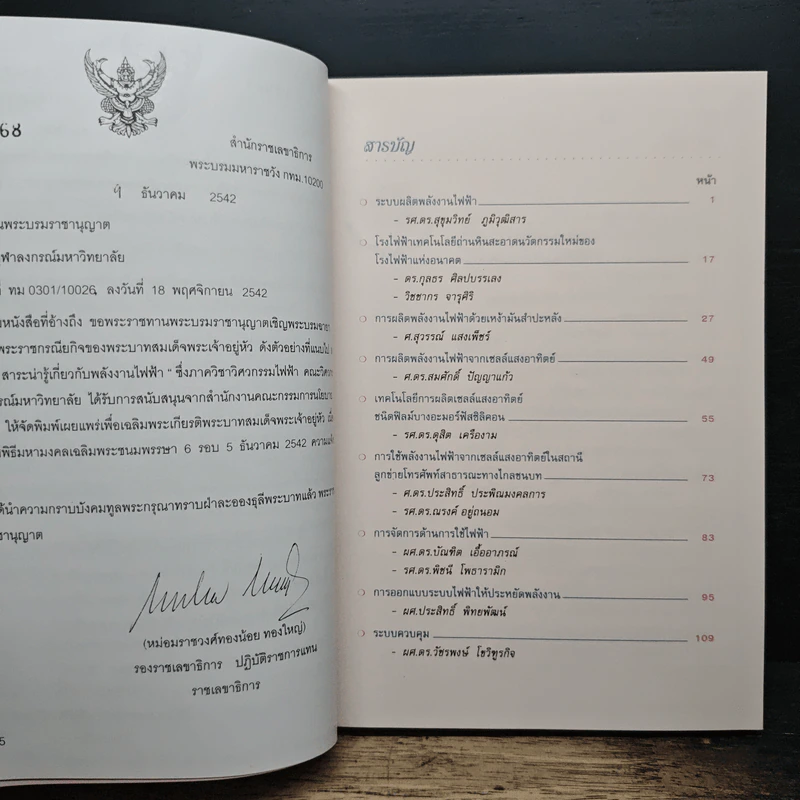 68
สำนักราชเลขาธิการ
พระบรมมหาราชวัง กทม.10200
ธันวาคม 2542
นพระบรมราชานุญาต
ฬาลงกรณ์มหาวิทยาลัย
ที่ ทม 0301/10026 ลงวันที่ 18 พฤศจิกายน 2542
มหนังสือที่อ้างถึง ขอพระราชทานพระบรมราชานุญาตเชิญพระบรมฉายา
พระราชกรณียกิจของพระบาทสมเด็จพระเจ้าอยู่หัว ดังตัวอย่างที่แนบไป
สาระน่ารู้เกี่ยวกับพลังงานไฟฟ้า " ซึ่งภาควิชาวิศวกรรมไฟฟ้า คณะวิศว
รณ์มหาวิทยาลัย ได้รับการสนับสนุนจากสำนักงานคณะกรรมการนโยบาย
ให้จัดพิมพ์เผยแพร่เพื่อเฉลิมพระเกียรติพระบาทสมเด็จพระเจ้าอยู่หัว
พิธีมหามงคลเฉลิมพระชนมพรรษา 6 รอบ 5 ธันวาคม 2542
ด้นำความกราบบังคมทูลพระกรุณาทราบฝ่าละอองธุลีพระบาทแล้ว
ชานุญาต
(หม่อมราชวงศ์ทองน้อย ทองใหญ่)
รองราชเลขาธิการ ปฏิบัติราชการแทน
ราชเลขาธิการ
5
สารบัญ
หน้า
ระบบผลิตพลังงานไฟฟ้า 1
- รศ.ดร.สุขุมวิทย์ ภูมิวุฒิสาร
โรงไฟฟ้าเทคโนโลยีถ่านหินสะอาดนวัตกรรมใหม่ของ
โรงไฟฟ้าแห่งอนาคต 17
- ดร.กุลธร ศิลปบรรเลง
- วิชชากร จารุศิริ
การผลิตพลังงานไฟฟ้าด้วยเหง้ามันสำปะหลัง 27
- ศ.สุวรรณ์ แสงเพ็ชร์
การผลิตพลังงานไฟฟ้าจากเซลล์แสงอาทิตย์ 49
- ศ.ดร.สมศักดิ์ ปัญญาแก้ว
เทคโนโลยีการผลิตเซลล์แสงอาทิตย์
ชนิดฟิล์มบางอะมอร์ฟัสซิลิคอน 55
- รศ.ดร.ดุสิต เครืองาม
การใช้พลังงานไฟฟ้าจากเซลล์แสงอาทิตย์ในสถานี
ลูกข่ายโทรศัพท์สาธารณะทางไกลชนบท 73
- ศ.ดร.ประสิทธิ์ ประพิณมงคลการ
- รศ.ดร.ณรงค์ อยู่ถนอม
การจัดการด้านการใช้ไฟฟ้า 83
- ผศ.ดร.บัณฑิต เอื้ออาภรณ์
- รศ.ดร.พิชนี โพธารามิก
การออกแบบระบบไฟฟ้าให้ประหยัดพลังงาน 95
- ผศ.ประสิทธิ์ พิทยพัฒน์
ระบบควบคุม 109
- ผศ.ดร.วัชรพงษ์ โขวิฑูรกิจ